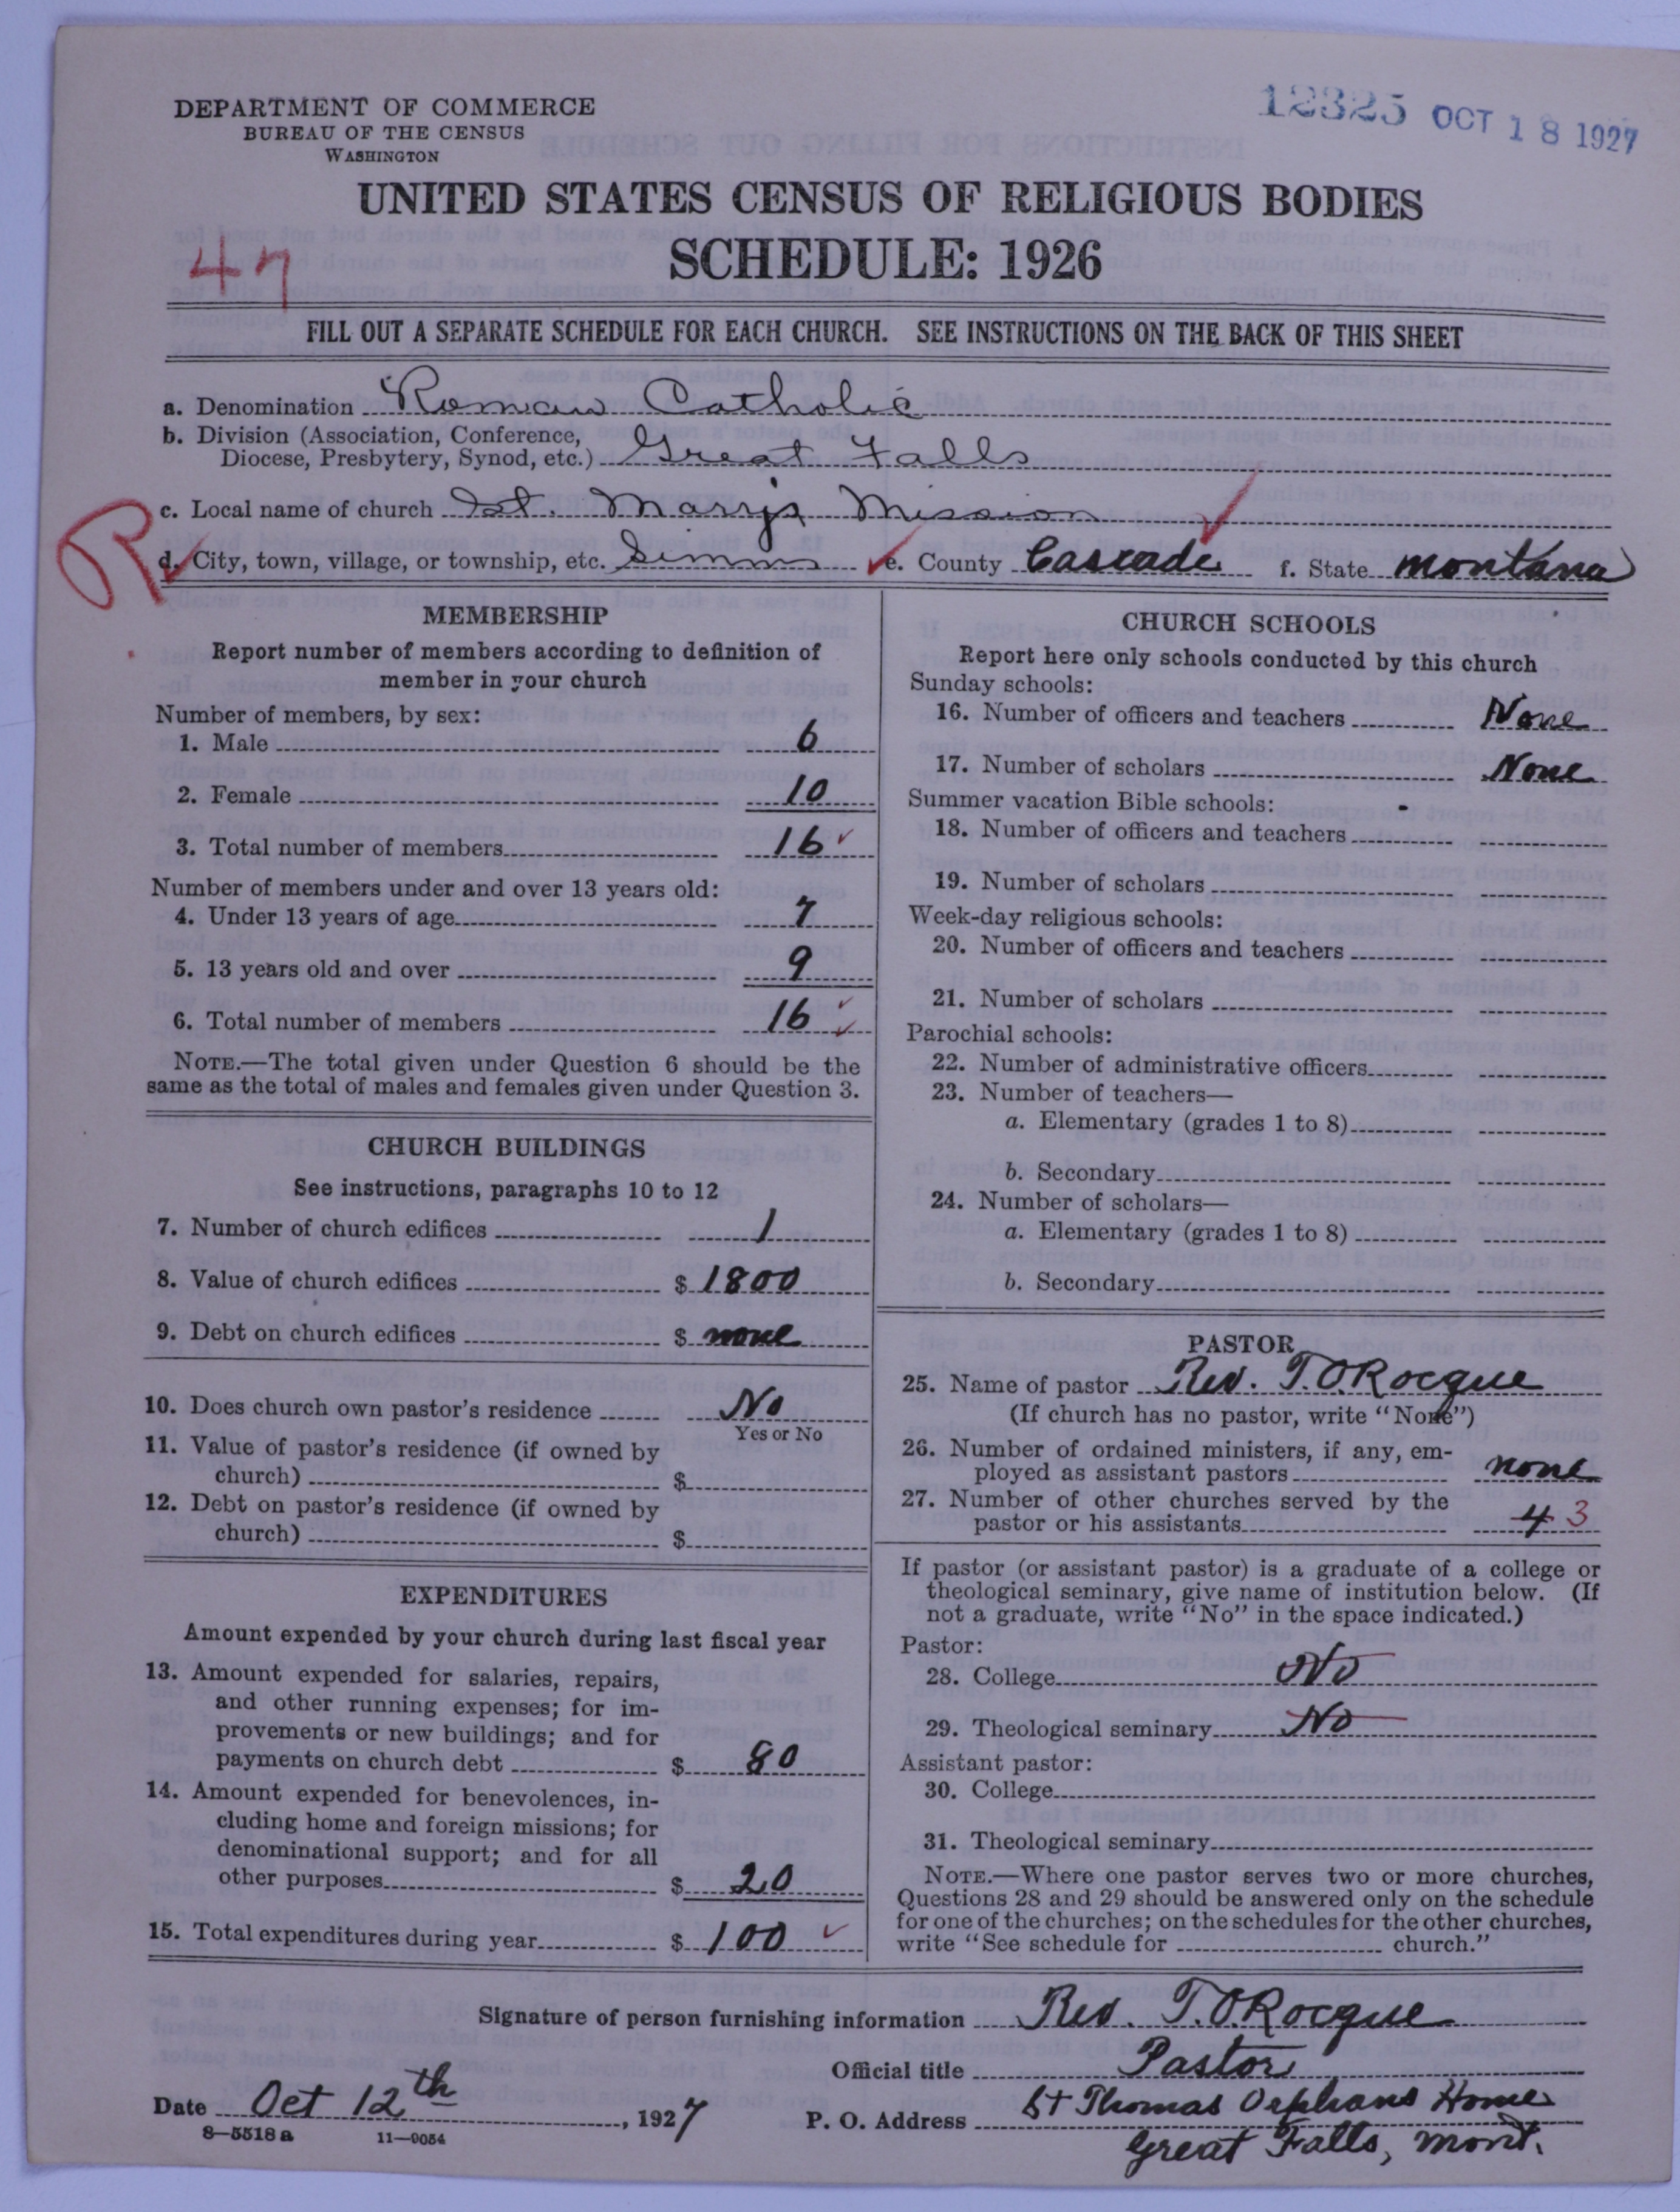 DEPARTMENT OF COMMERCE
BUREAU OF THE CENSUS
WASHINGTON
12325 OCT 18 1927
UNITED STATES CENSUS OF RELIGIOUS BODIES
SCHEDULE: 1926
47
FILL OUT A SEPARATE SCHEDULE FOR EACH CHURCH. SEE INSTRUCTIONS ON THE BACK OF THIS SHEET
a. Denomination Roman Catholic
b. Division (Association, Conference,
Diocese, Presbytery, Synod, etc.) Great Falls
R
c. Local name of church St. Marry's Mission
d. City, town, village, or township, etc. Simms e. County Cascade f. State Montana
MEMBERSHIP
Report number of members according to definition of
member in your church
Number of members, by sex:
1. Male 6
2. Female 10
3. Total number of members 16
Number of members under and over 13 years old:
4. Under 13 years of age 7
5. 13 years old and over 9
6. Total number of members 16
NOTE.—The total given under Question 6 should be the
same as the total of males and females given under Question 3.
CHURCH BUILDINGS
See instructions, paragraphs 10 to 12
7. Number of church edifices 1
8. Value of church edifices $ 1800
9. Debt on church edifices $ none
10. Does church own pastor's residence No
Yes or No
11. Value of pastor's residence (if owned by
church) $
12. Debt on pastor's residence (if owned by
church) $
EXPENDITURES
Amount expended by your church during last fiscal year
13. Amount expended for salaries, repairs,
and other running expenses; for im-
provements or new buildings; and for
payments on church debt $ 80
14. Amount expended for benevolences, in-
cluding home and foreign missions; for
denominational support; and for all
other purposes $ 20
15. Total expenditures during year $ 100
CHURCH SCHOOLS
Report here only schools conducted by this church
Sunday schools:
16. Number of officers and teachers None
17. Number of scholars None
Summer vacation Bible schools:
18. Number of officers and teachers
19. Number of scholars
Week-day religious schools:
20. Number of officers and teachers
21. Number of scholars
Parochial schools:
22. Number of administrative officers
23. Number of teachers—
a. Elementary (grades 1 to 8)
b. Secondary
24. Number of scholars—
a. Elementary (grades 1 to 8)
b. Secondary
PASTOR
25. Name of pastor Rev. T. O. Rocque
(If church has no pastor, write "None")
26. Number of ordained ministers, if any, em-
ployed as assistant pastors none
27. Number of other churches served by the
pastor or his assistants 4 3
If pastor (or assistant pastor) is a graduate of a college or
theological seminary, give name of institution below. (If
not a graduate, write "No" in the space indicated.)
Pastor:
28. College No
29. Theological seminary No
Assistant pastor:
30. College
31. Theological seminary
NOTE.—Where one pastor serves two or more churches,
Questions 28 and 29 should be answered only on the schedule
for one of the churches; on the schedules for the other churches,
write "See schedule for church."
Signature of person furnishing information Rev. T. O. Rocque
Official title Pastor
Date Oct 12th, 1927 P. O. Address St Thomas Orphans Home
Great Falls, Mont.
8—5518 a 11—9054